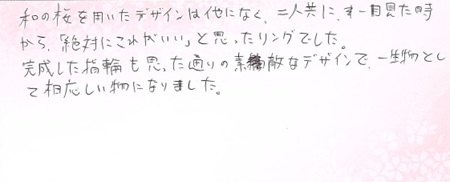 和の桜を用いたデザインは他になく、二人共に、す一目見た時
から、「絶対にこれがいい」と思ったリングでした。
完成した指輪も思った通りの素敵なデザインで、一生物とし
て相応しい物になりました。